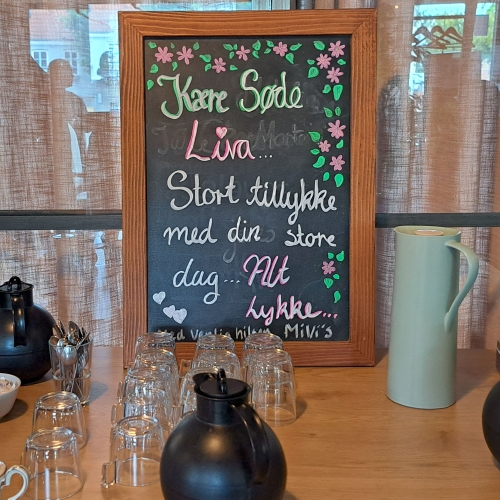 Kære Søde
Liva...
Stort tillykke
med din store
dag... Alt
Lykke...
Med venlig hilsen Mivi's